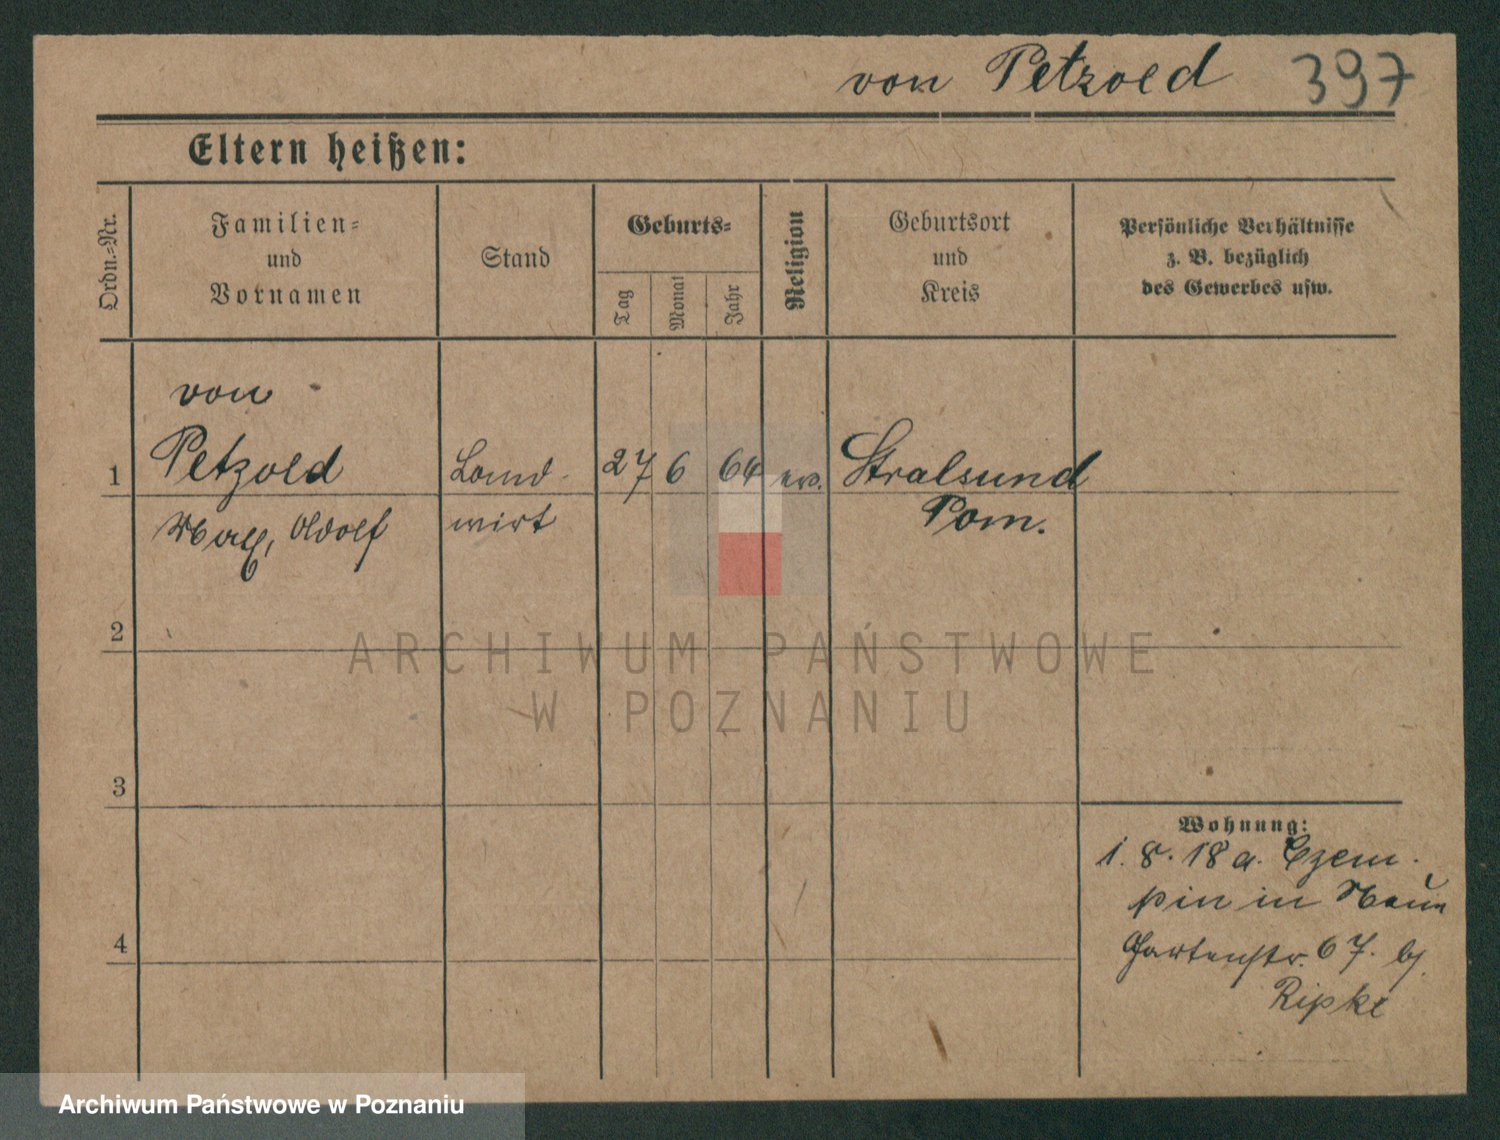 von Petzold 397
Eltern heißen:
Ordn.=Nr.
Familien=
und
Vornamen
Stand
Geburts=
Tag
Monat
Jahr
Religion
Geburtsort
und
Kreis
Persönliche Verhältnisse
z. B. bezüglich
des Gewerbes usw.
von
1 Petzold Land- 27 6 64 ev. Stralsund
Adolf wirt Pom.
2
ARCHIWUM PAŃSTWOWE
W POZNANIU
3
Wohnung:
1. 8. 18 a. Czem-
pin in
4
Gartenstr. 67. bj.
Ripke
Archiwum Państwowe w Poznaniu